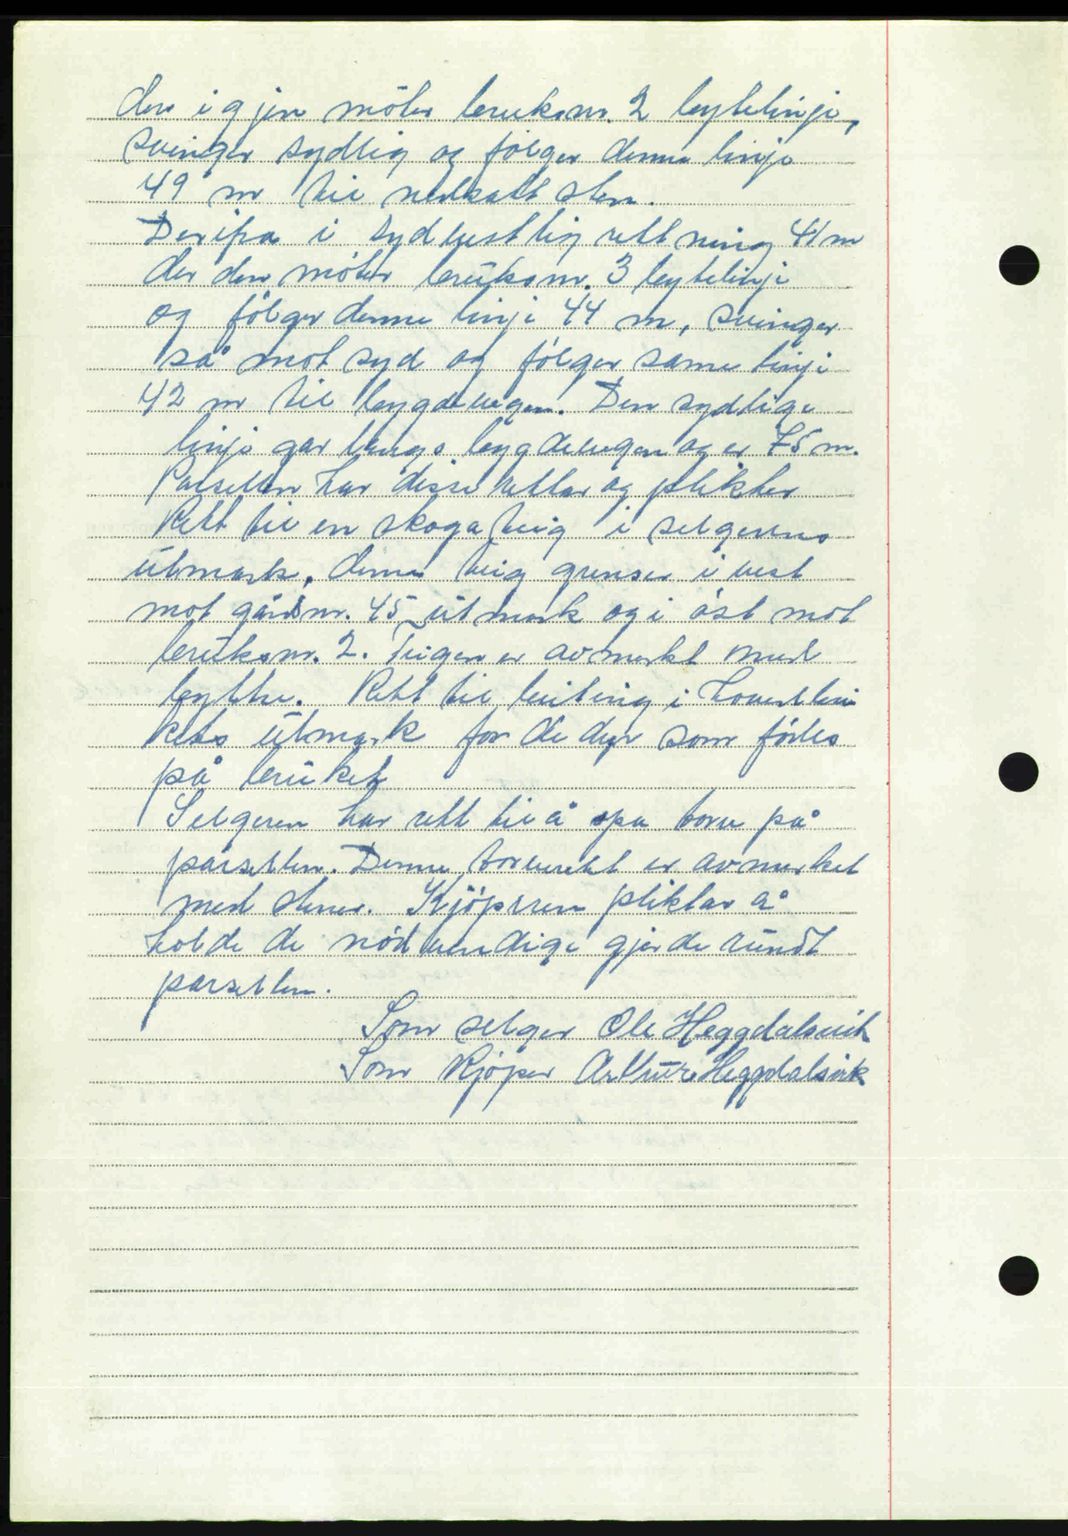 den igjen möter bruksnr. 2 bytelinje,
svinger sydlig og følger denne linje
49 m til nedsatt sten.
Derifra i sydvestlig rettning 41 m
der den møter bruksnr. 3 bytelinje
og følger denne linje 44 m, svinger
så mot syd og følger samme linje
42 m til bygdevegen. Den sydlige
linje går langs bygdevegen og er 75 m.
Parsellen har disse retter og plikter
Rett til en skogateig i selgerens
utmark, denne teig grenser i vest
mot gårdsnr. 45 utmark og i öst mot
bruksnr. 2. Teigen er avmerkt med
bytte. Rett til beiting i hovedbru
kets utmark for de dyr som födes
på bruket
Selgeren har rett til å spa torv på
parsellen. Denne torvrett er avmerket
med stener. Kjöperen pliktar å
holde de nödvendige gjerde rundt
parsellen.
Som selger Ole Heggdalsvik
Som kjöper Arthur Heggdalsvik